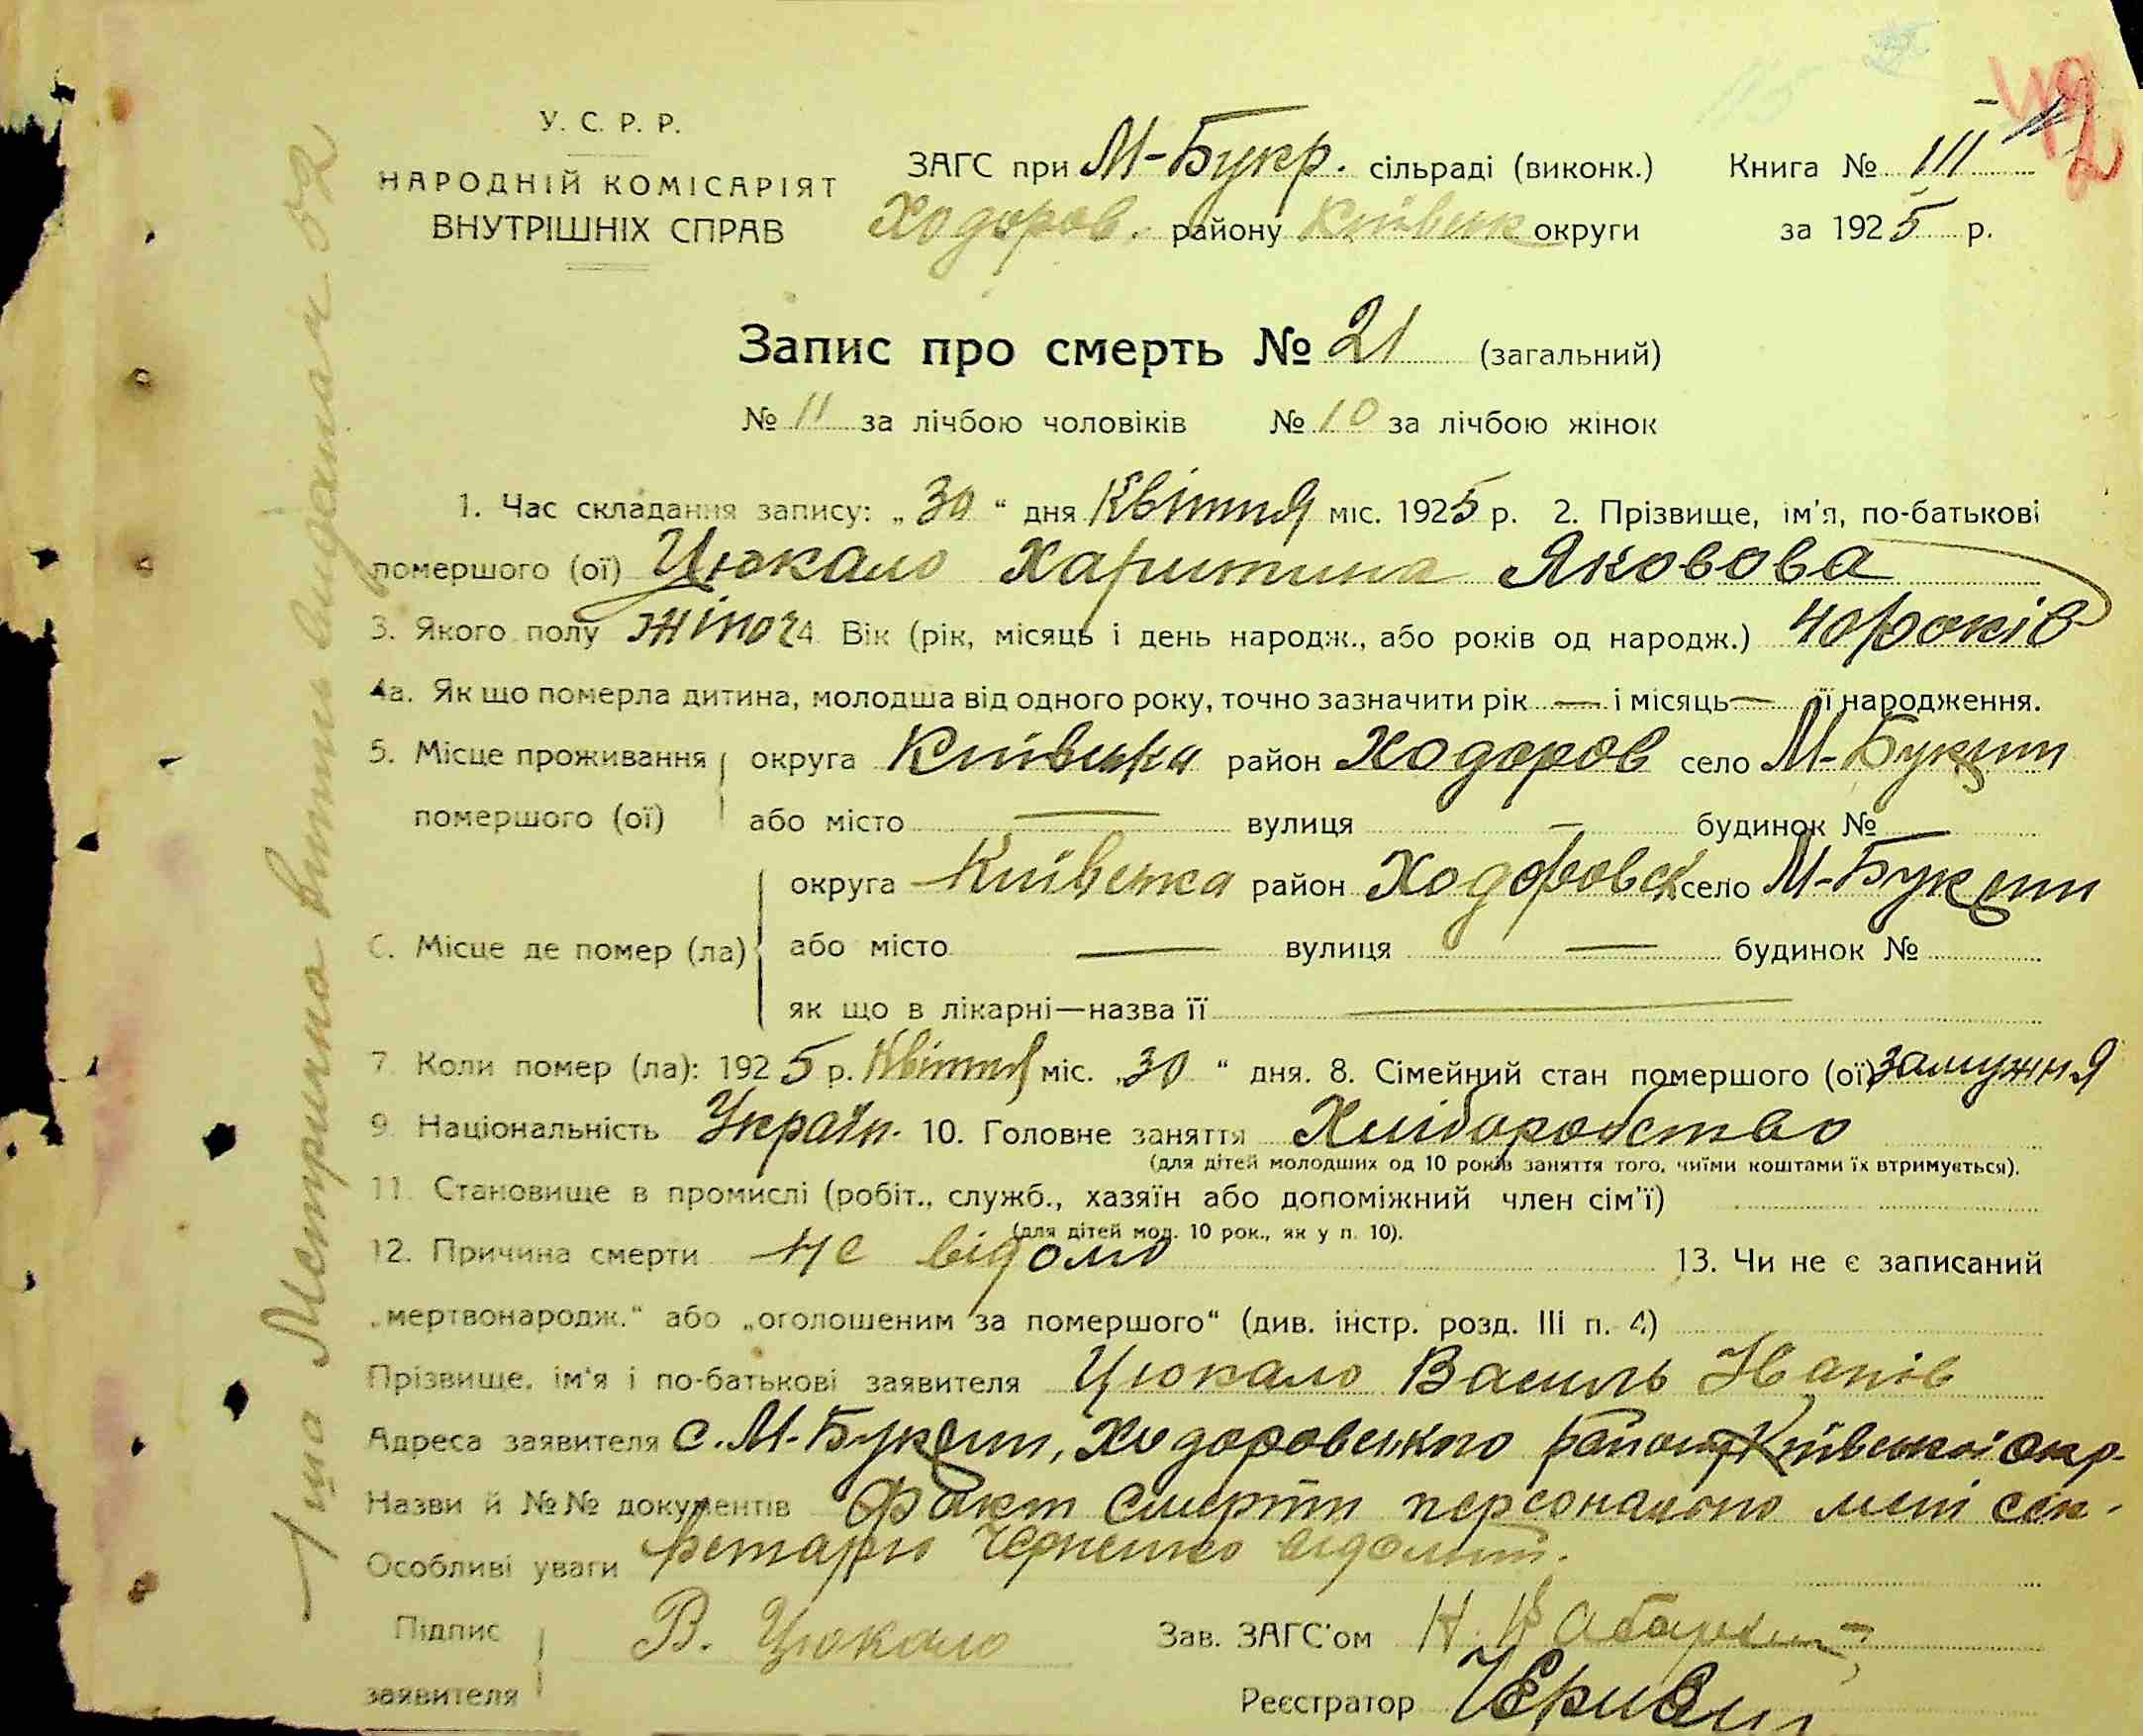 У. С. Р. Р.
НАРОДНІЙ КОМІСАРІЯТ
ВНУТРІШНІХ СПРАВ
ЗАГС при М-Букр. сільраді (виконк.) Книга № III
Ходоров. району Київськ округи за 1925 р.
42
Запис про смерть № 21 (загальний)
№ 11 за лічбою чоловіків № 10 за лічбою жінок
1. Час складання запису: „30“ дня Квітня міс. 1925 р. 2. Прізвище, ім'я, по-батькові
помершого (ої) Цюкало Харитина Яковова
3. Якого полу жіноч 4. Вік (рік, місяць і день народж., або років од народж.) 40 років
4а. Як що померла дитина, молодша від одного року, точно зазначити рік — і місяць — її народження.
5. Місце проживання округа Київська район Ходоров село М-Букрин
помершого (ої) або місто — вулиця — будинок № —
округа Київська район Ходоровськ село М-Букрин
6. Місце де помер (ла) або місто — вулиця — будинок №
як що в лікарні—назва її —
7. Коли помер (ла): 1925 р. Квітня міс. „30“ дня. 8. Сімейний стан помершого (ої) замужня
9. Національність Україн. 10. Головне заняття Хліборобство
(для дітей молодших од 10 років заняття того, чиїми коштами їх втримується).
11. Становище в промислі (робіт., служб., хазяїн або допоміжний член сім'ї)
(для дітей мол. 10 рок., як у п. 10).
12. Причина смерти не відомо 13. Чи не є записаний
„мертвонародж.“ або „оголошеним за помершого“ (див. інстр. розд. III п. 4)
Прізвище, ім'я і по-батькові заявителя Цюкало Василь Іванів
Адреса заявителя с. М-Букрин, Ходоровського району Київської окр.
Назви й №№ документів Факт смерти персонально мені сек-
Особливі уваги ретарю Черненко відомий.
Підпис заявителя В. Цюкало Зав. ЗАГС'ом Н.
Реєстратор